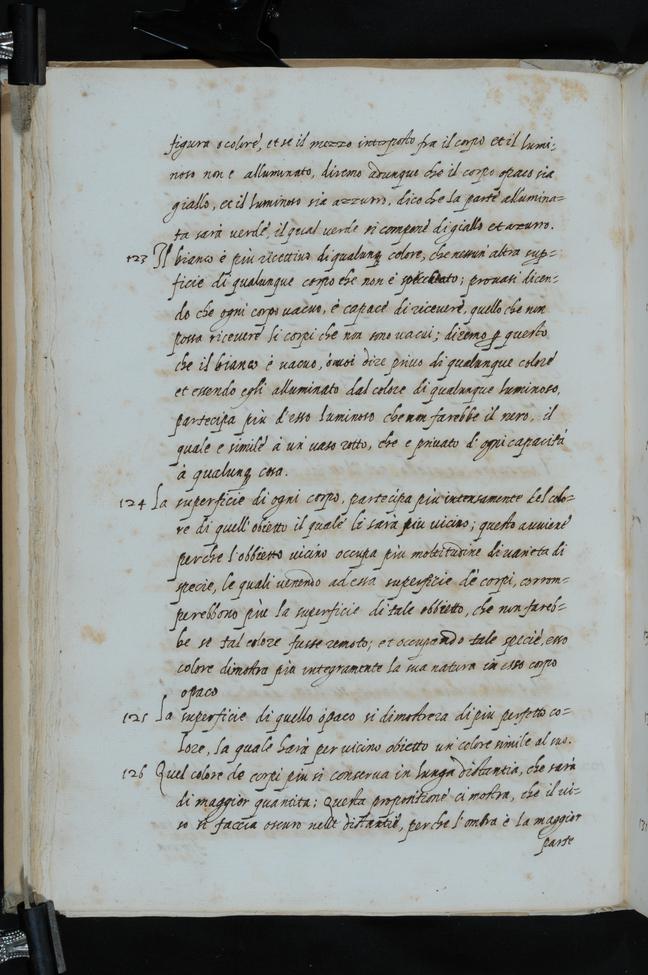 figura o colore, et se il mezzo interposto fra il corpo et il lumi=
noso non è alluminato, diremo adunque che il corpo opaco sia
giallo, et il luminoso sia azzurro, dico che la parte allumina=
ta sarà verde, il qual verde si compone di giallo et azurro.
123 Il bianco è più ricettivo di qualunq colore, che nessun'altra sup=
ficie di qualunque corpo che non è specchiato; provasi dicen=
do che ogni corpo vacuo, è capace di ricevere, quello che non
posso ricevere li corpi che non sono vacui; diremo p questo
che il bianco è vacuo, ò uoi dire privo di qualunque colore
et essendo egli alluminato dal colore di qualunque luminoso,
partecipa più d'esso luminoso che non farebbe il nero, il
quale e simile à un vaso rotto, che e privato d'ogni capacità
à qualunq cosa.
124 La superficie di ogni corpo, partecipa più intensamente del colo=
re di quell'obietto il quale le sarà più vicino; questo avviene
perche l'obbietto vicino occupa più moltitudine di varieta di
specie, le quali venendo ad essa superficie de corpi, corrom=
perebbono più la superficie di tale obbietto, che non fareb=
be se tal colore fusse remoto; et occupando tale specie, esso
colore dimostra più integramente la sua natura in esso corpo
opaco
125 La superficie di quello opaco si dimostrera di più perfetto co=
lore, la quale harà per vicino obietto un'colore simile al suo.
126 Quel colore de corpi più si conserva in lunga distantia, che sarà
di maggior quantita; Questa propositione ci mostra, che il vi=
so si faccia oscuro nelle distantie, perche l'ombra è la maggior
parte